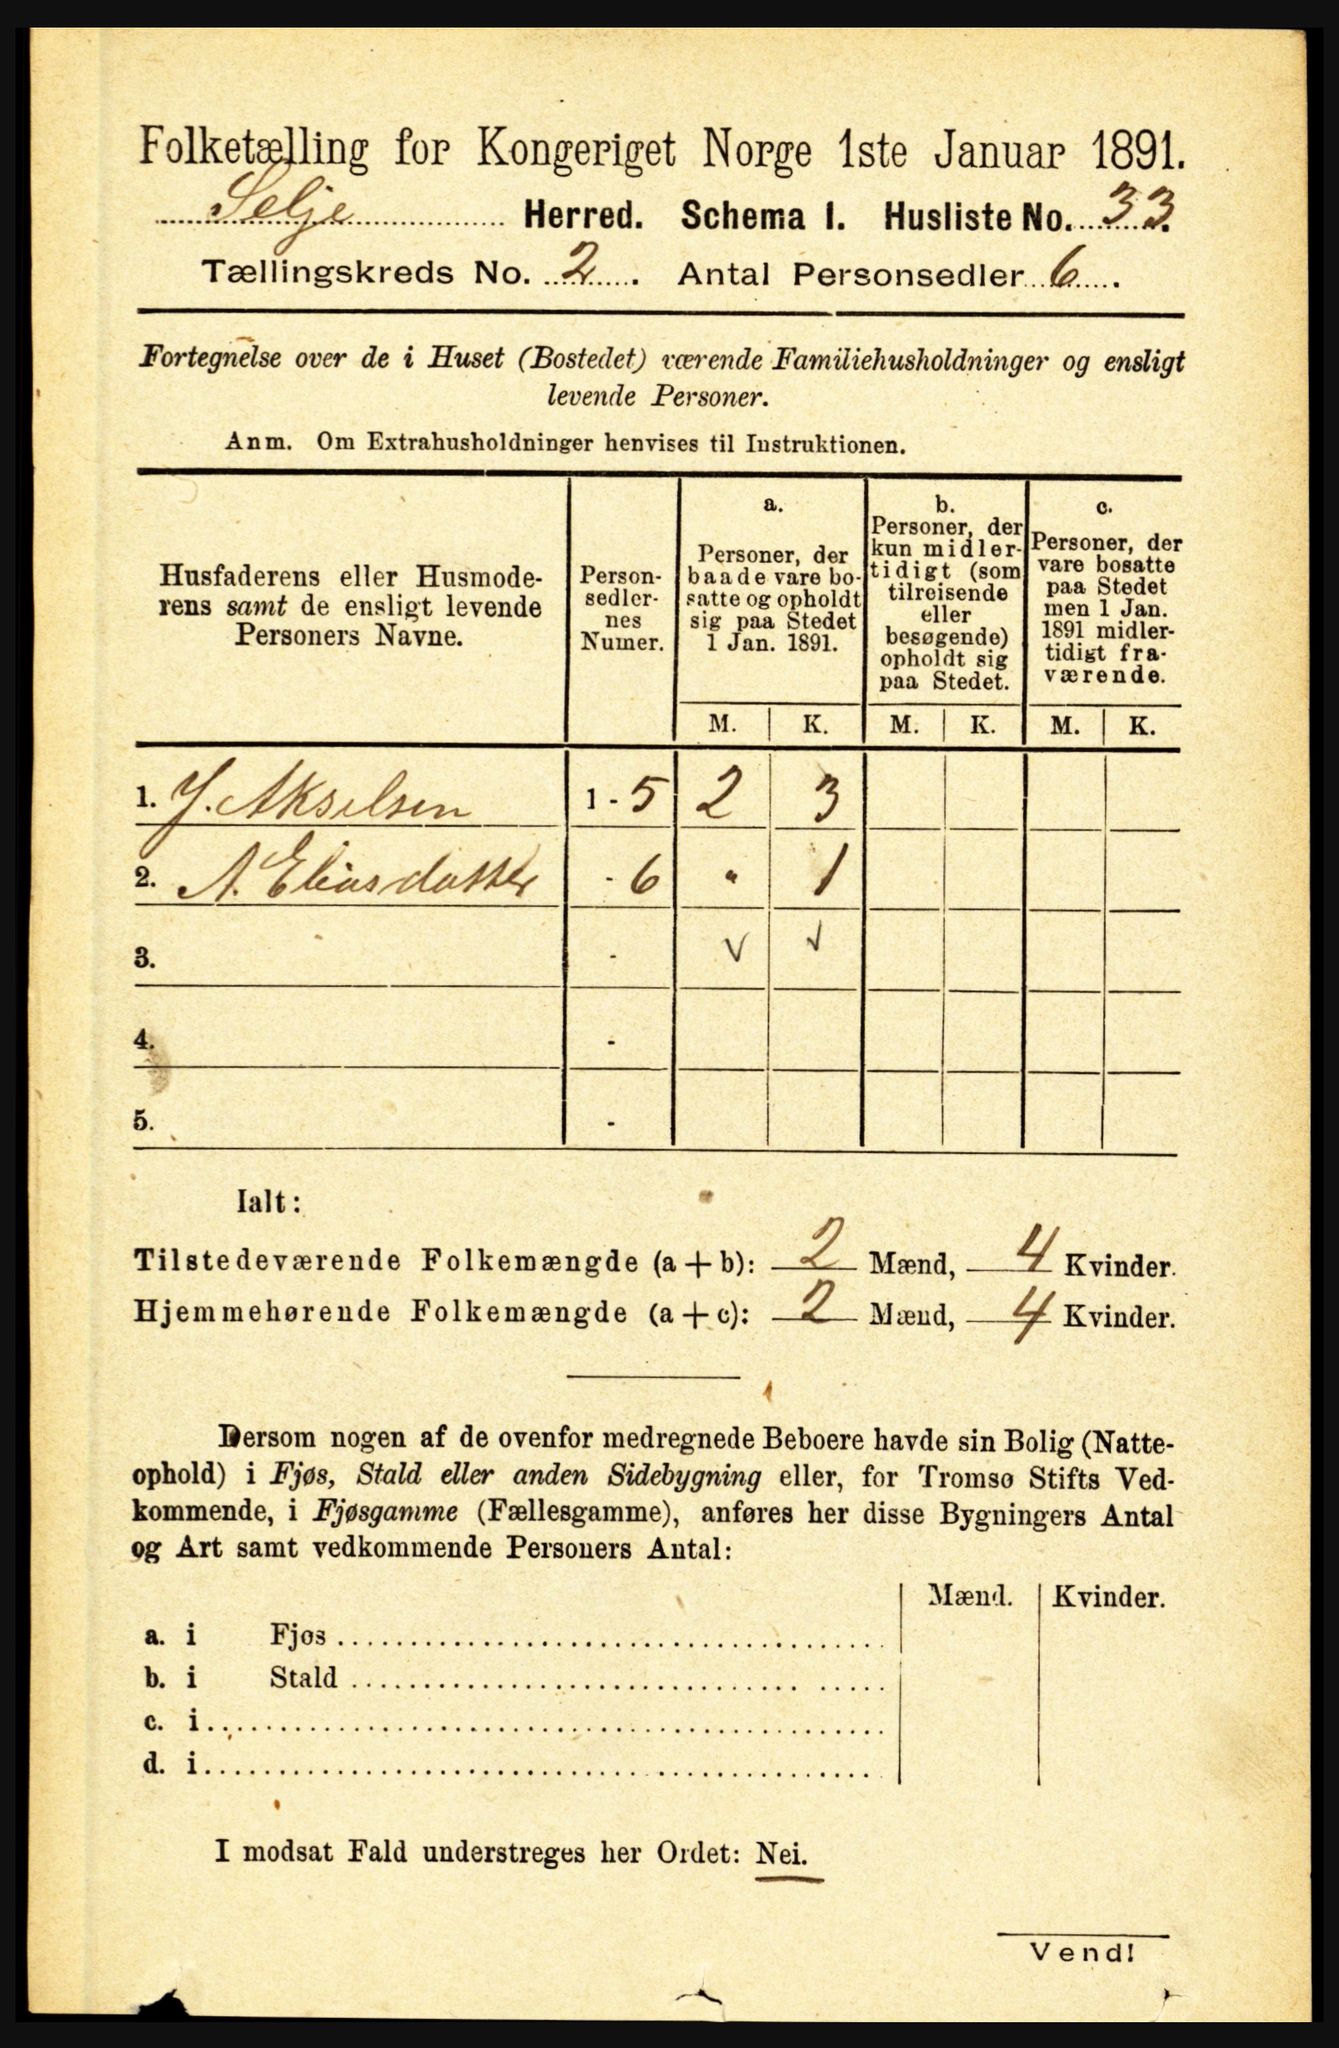 Folketælling for Kongeriget Norge 1ste Januar 1891.
Selje Herred. Schema I. Husliste No. 33.
Tællingskreds No. 2. Antal Personsedler 6.
Fortegnelse over de i Huset (Bostedet) værende Familiehusholdninger og ensligt
levende Personer.
Anm. Om Extrahusholdninger henvises til Instruktionen.
Husfaderens eller Husmode-
rens samt de ensligt levende
Personers Navne.
Person-
sedler-
nes
Numer.
a.
Personer, der
baade vare bo-
satte og opholdt
sig paa Stedet
1 Jan. 1891.
b.
Personer, der
kun midler-
tidigt (som
tilreisende
eller
besøgende)
opholdt sig
paa Stedet.
c.
Personer, der
vare bosatte
paa Stedet
men 1 Jan.
1891 midler-
tidigt fra-
værende.
M. K. M. K. M. K.
1. J. Akselsen 1 - 5 2 3
2. A. Eliasdatter - 6 " 1
3. - √ √
4. -
5. -
Ialt:
Tilstedeværende Folkemængde (a + b): 2 Mænd, 4 Kvinder.
Hjemmehørende Folkemængde (a + c): 2 Mænd, 4 Kvinder.
Dersom nogen af de ovenfor medregnede Beboere havde sin Bolig (Natte-
ophold) i Fjøs, Stald eller anden Sidebygning eller, for Tromsø Stifts Ved-
kommende, i Fjøsgamme (Fællesgamme), anføres her disse Bygningers Antal
og Art samt vedkommende Personers Antal:
Mænd. Kvinder.
a. i Fjøs
b. i Stald
c. i
d. i
I modsat Fald understreges her Ordet: Nei.
Vend!